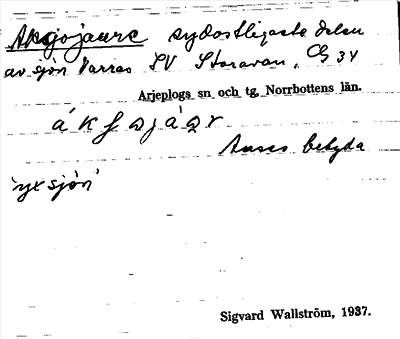 Aksjojaure sydostligaste delen
av sjön Varras SV Storavan, Cg 34
Arjeplogs sn och tg, Norrbottens län.
anses betyda
'yxsjön'
Sigvard Wallström, 1937.